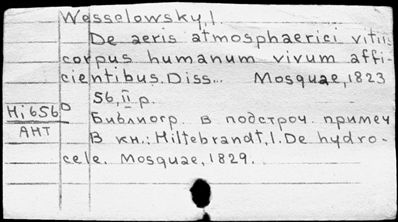 Wesselowsky, I.
De aeris atmosphaerici vitiis
corpus humanum vivum affi-
cientibus. Diss... Mosquae, 1823
56, II p.
Hi 656
АНТ
Библиогр. в подстроч. примеч
В кн.: Hiltebrandt, I. De hydro-
cele. Mosquae, 1829.